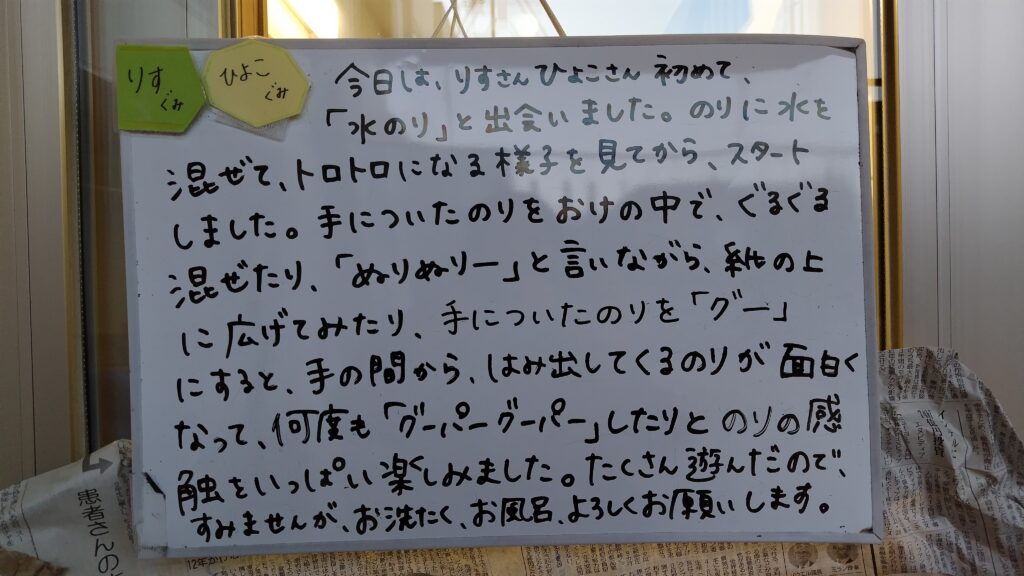 りすぐみ
ひよこぐみ
今日は、りすさんひよこさん初めて、
「水のり」と出会いました。のりに水を
混ぜて、トロトロになる様子を見てから、スタート
しました。手についたのりをおけの中で、ぐるぐる
混ぜたり、「ぬりぬりー」と言いながら、紙の上
に広げてみたり、手についたのりを「グー」
にすると、手の間から、はみ出してくるのりが面白く
なって、何度も「グーパーグーパー」したりとのりの感
触をいっぱい楽しみました。たくさん遊んだので、
すみませんが、お洗たく、お風呂、よろしくお願いします。
患者さんの